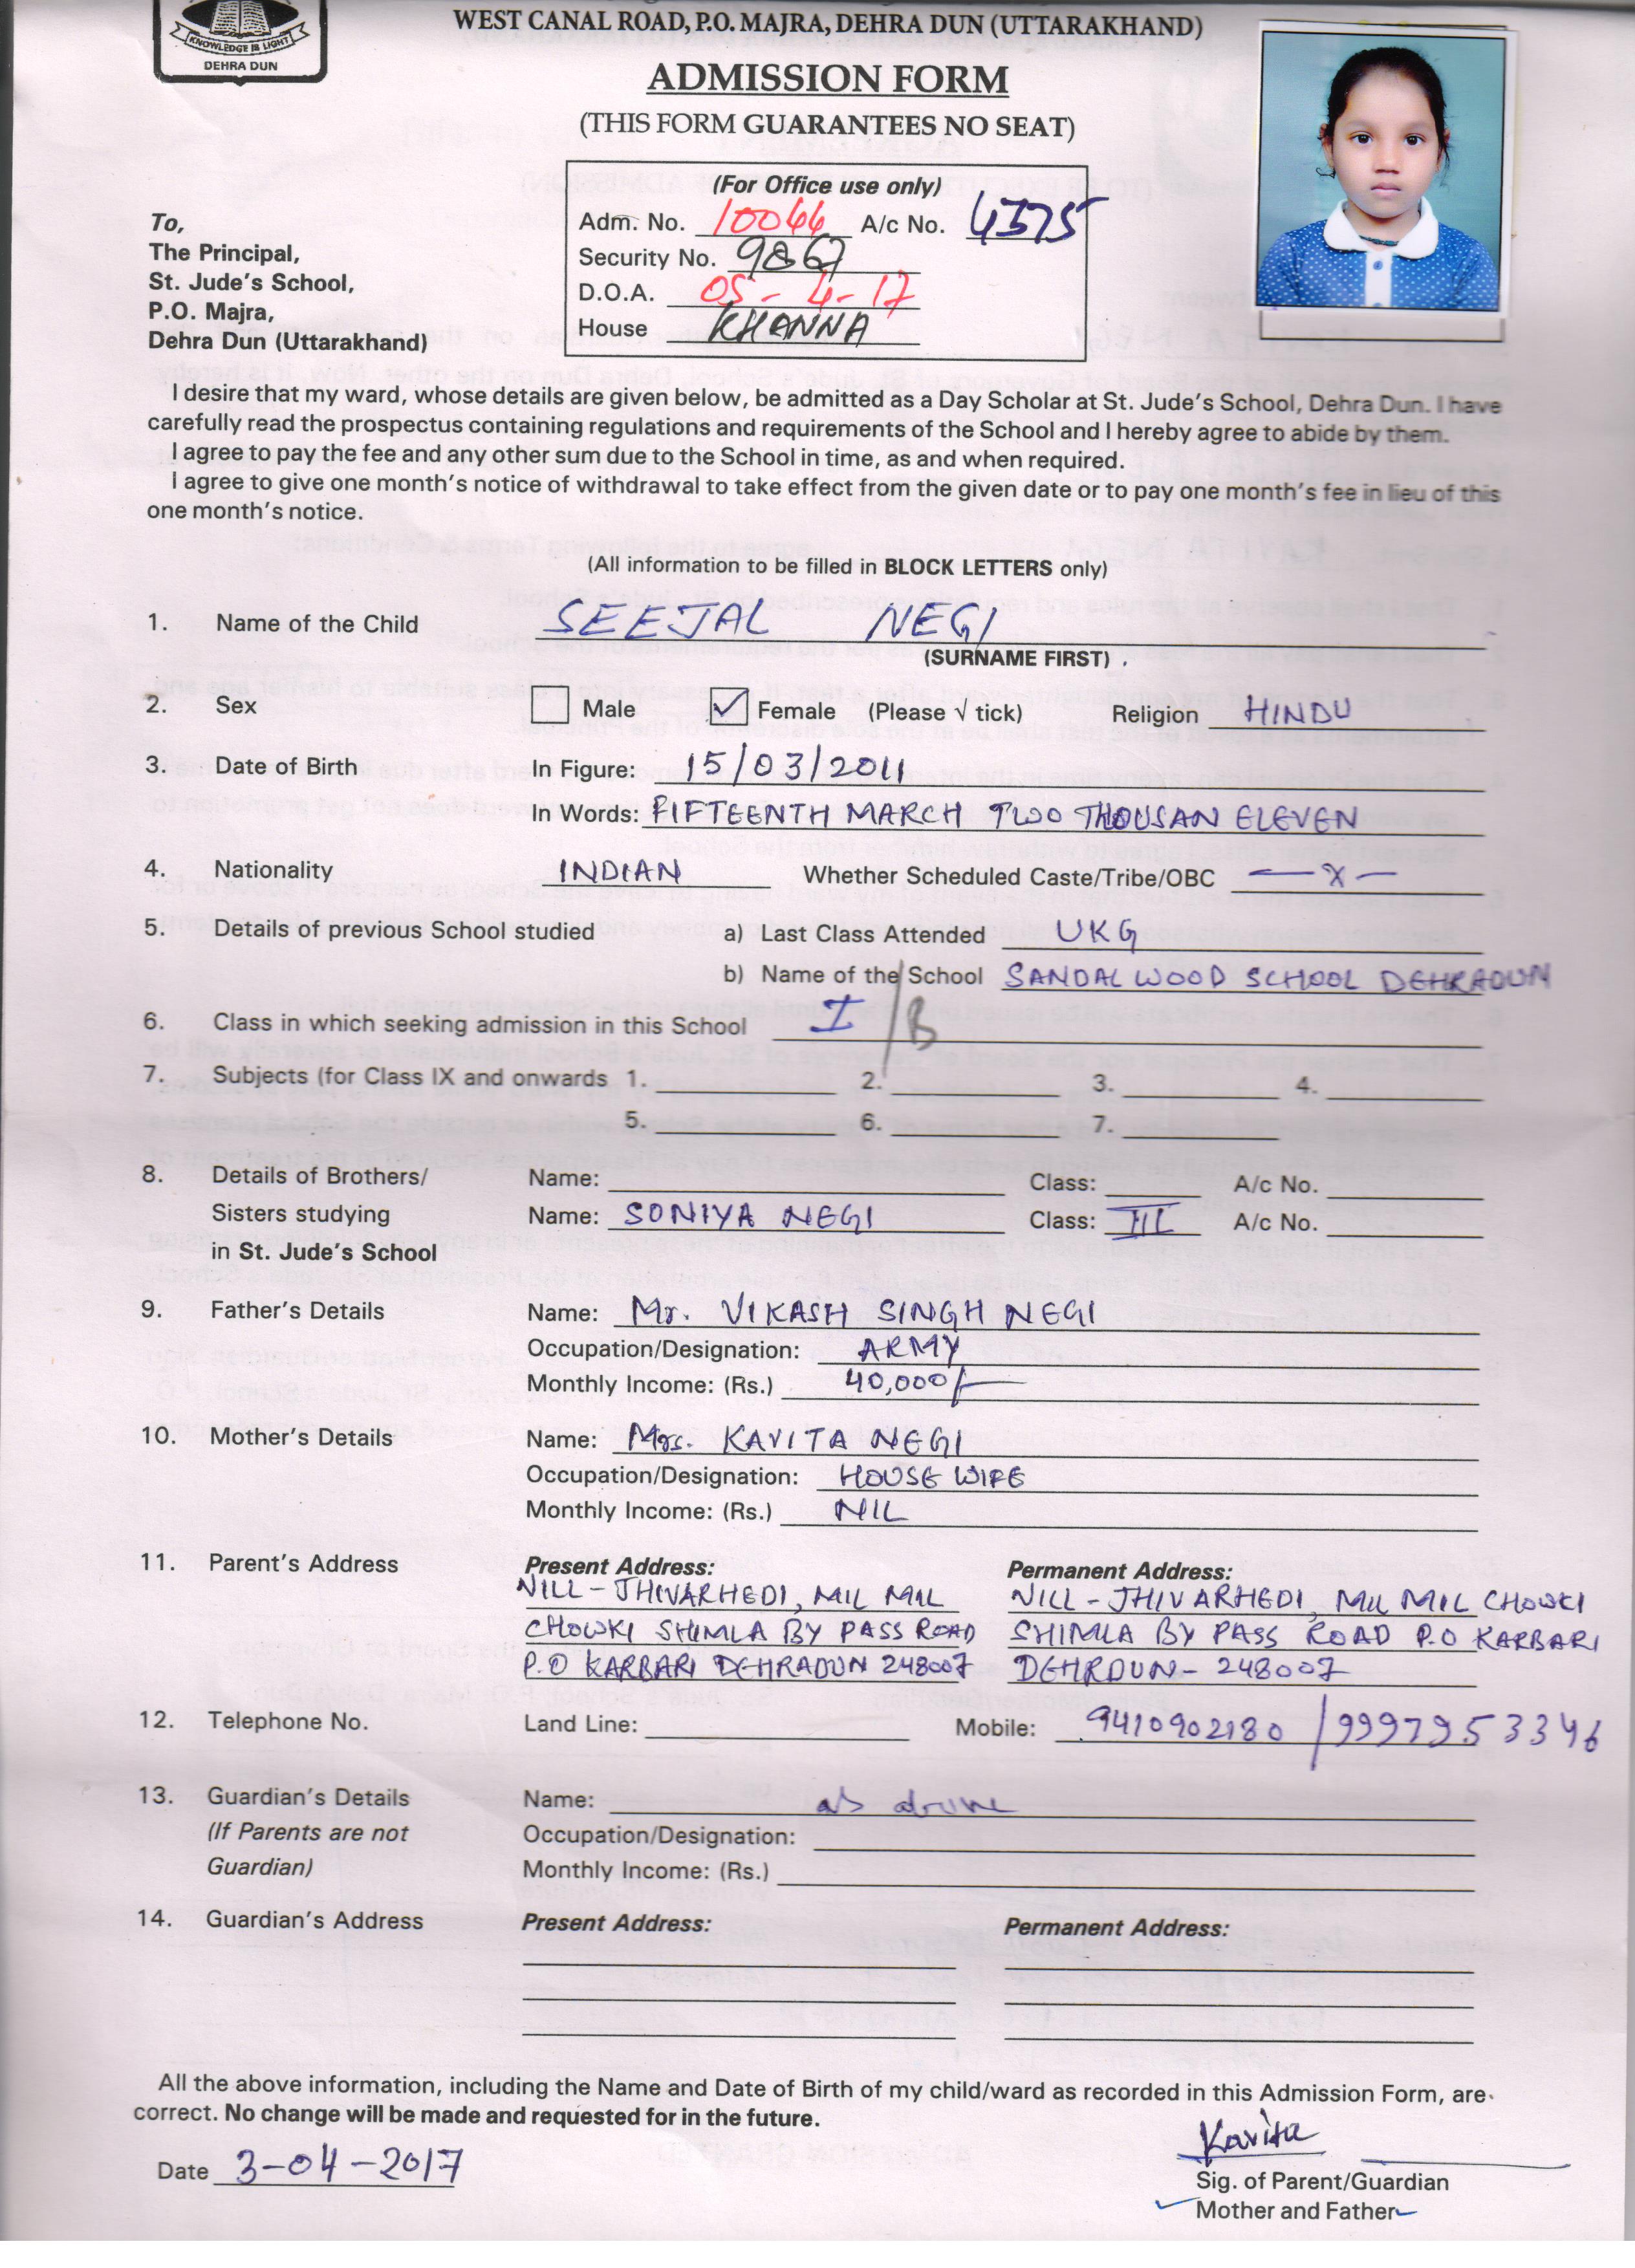 KNOWLEDGE IS LIGHT
DEHRA DUN
WEST CANAL ROAD, P.O. MAJRA, DEHRA DUN (UTTARAKHAND)
ADMISSION FORM
(THIS FORM GUARANTEES NO SEAT)
(For Office use only)
Adm. No. 10044 A/c No. 4375
Security No. 9867
D.O.A. 05-4-17
House KHANNA
To,
The Principal,
St. Jude's School,
P.O. Majra,
Dehra Dun (Uttarakhand)
I desire that my ward, whose details are given below, be admitted as a Day Scholar at St. Jude's School, Dehra Dun. I have
carefully read the prospectus containing regulations and requirements of the School and I hereby agree to abide by them.
I agree to pay the fee and any other sum due to the School in time, as and when required.
I agree to give one month's notice of withdrawal to take effect from the given date or to pay one month's fee in lieu of this
one month's notice.
(All information to be filled in BLOCK LETTERS only)
1. Name of the Child SEEJAL NEGI
(SURNAME FIRST) .
2. Sex Male ✓ Female (Please √ tick) Religion HINDU
3. Date of Birth In Figure: 15/03/2011
In Words: FIFTEENTH MARCH TWO THOUSAN ELEVEN
4. Nationality INDIAN Whether Scheduled Caste/Tribe/OBC —x—
5. Details of previous School studied a) Last Class Attended UKG
b) Name of the School SANDAL WOOD SCHOOL DEHRADUN
6. Class in which seeking admission in this School I/B
7. Subjects (for Class IX and onwards 1. 2. 3. 4.
5. 6. 7.
8. Details of Brothers/ Name: Class: A/c No.
Sisters studying Name: SONIYA NEGI Class: III A/c No.
in St. Jude's School
9. Father's Details Name: Mr. VIKASH SINGH NEGI
Occupation/Designation: ARMY
Monthly Income: (Rs.) 40,000/-
10. Mother's Details Name: Mrs. KAVITA NEGI
Occupation/Designation: HOUSE WIFE
Monthly Income: (Rs.) NIL
11. Parent's Address Present Address: Permanent Address:
NILL-JHIVARHEDI, MIL MIL NILL-JHIVARHEDI, MIL MIL CHOWKI
CHOWKI SHIMLA BY PASS ROAD SHIMLA BY PASS ROAD P.O KARBARI
P.O KARBARI DEHRADUN 248007 DEHRDUN-248007
12. Telephone No. Land Line: Mobile: 9410902180 / 9997953346
13. Guardian's Details Name: as above
(If Parents are not Occupation/Designation:
Guardian) Monthly Income: (Rs.)
14. Guardian's Address Present Address: Permanent Address:
All the above information, including the Name and Date of Birth of my child/ward as recorded in this Admission Form, are
correct. No change will be made and requested for in the future.
Kavita
Date 3-04-2017
Sig. of Parent/Guardian
✓ Mother and Father